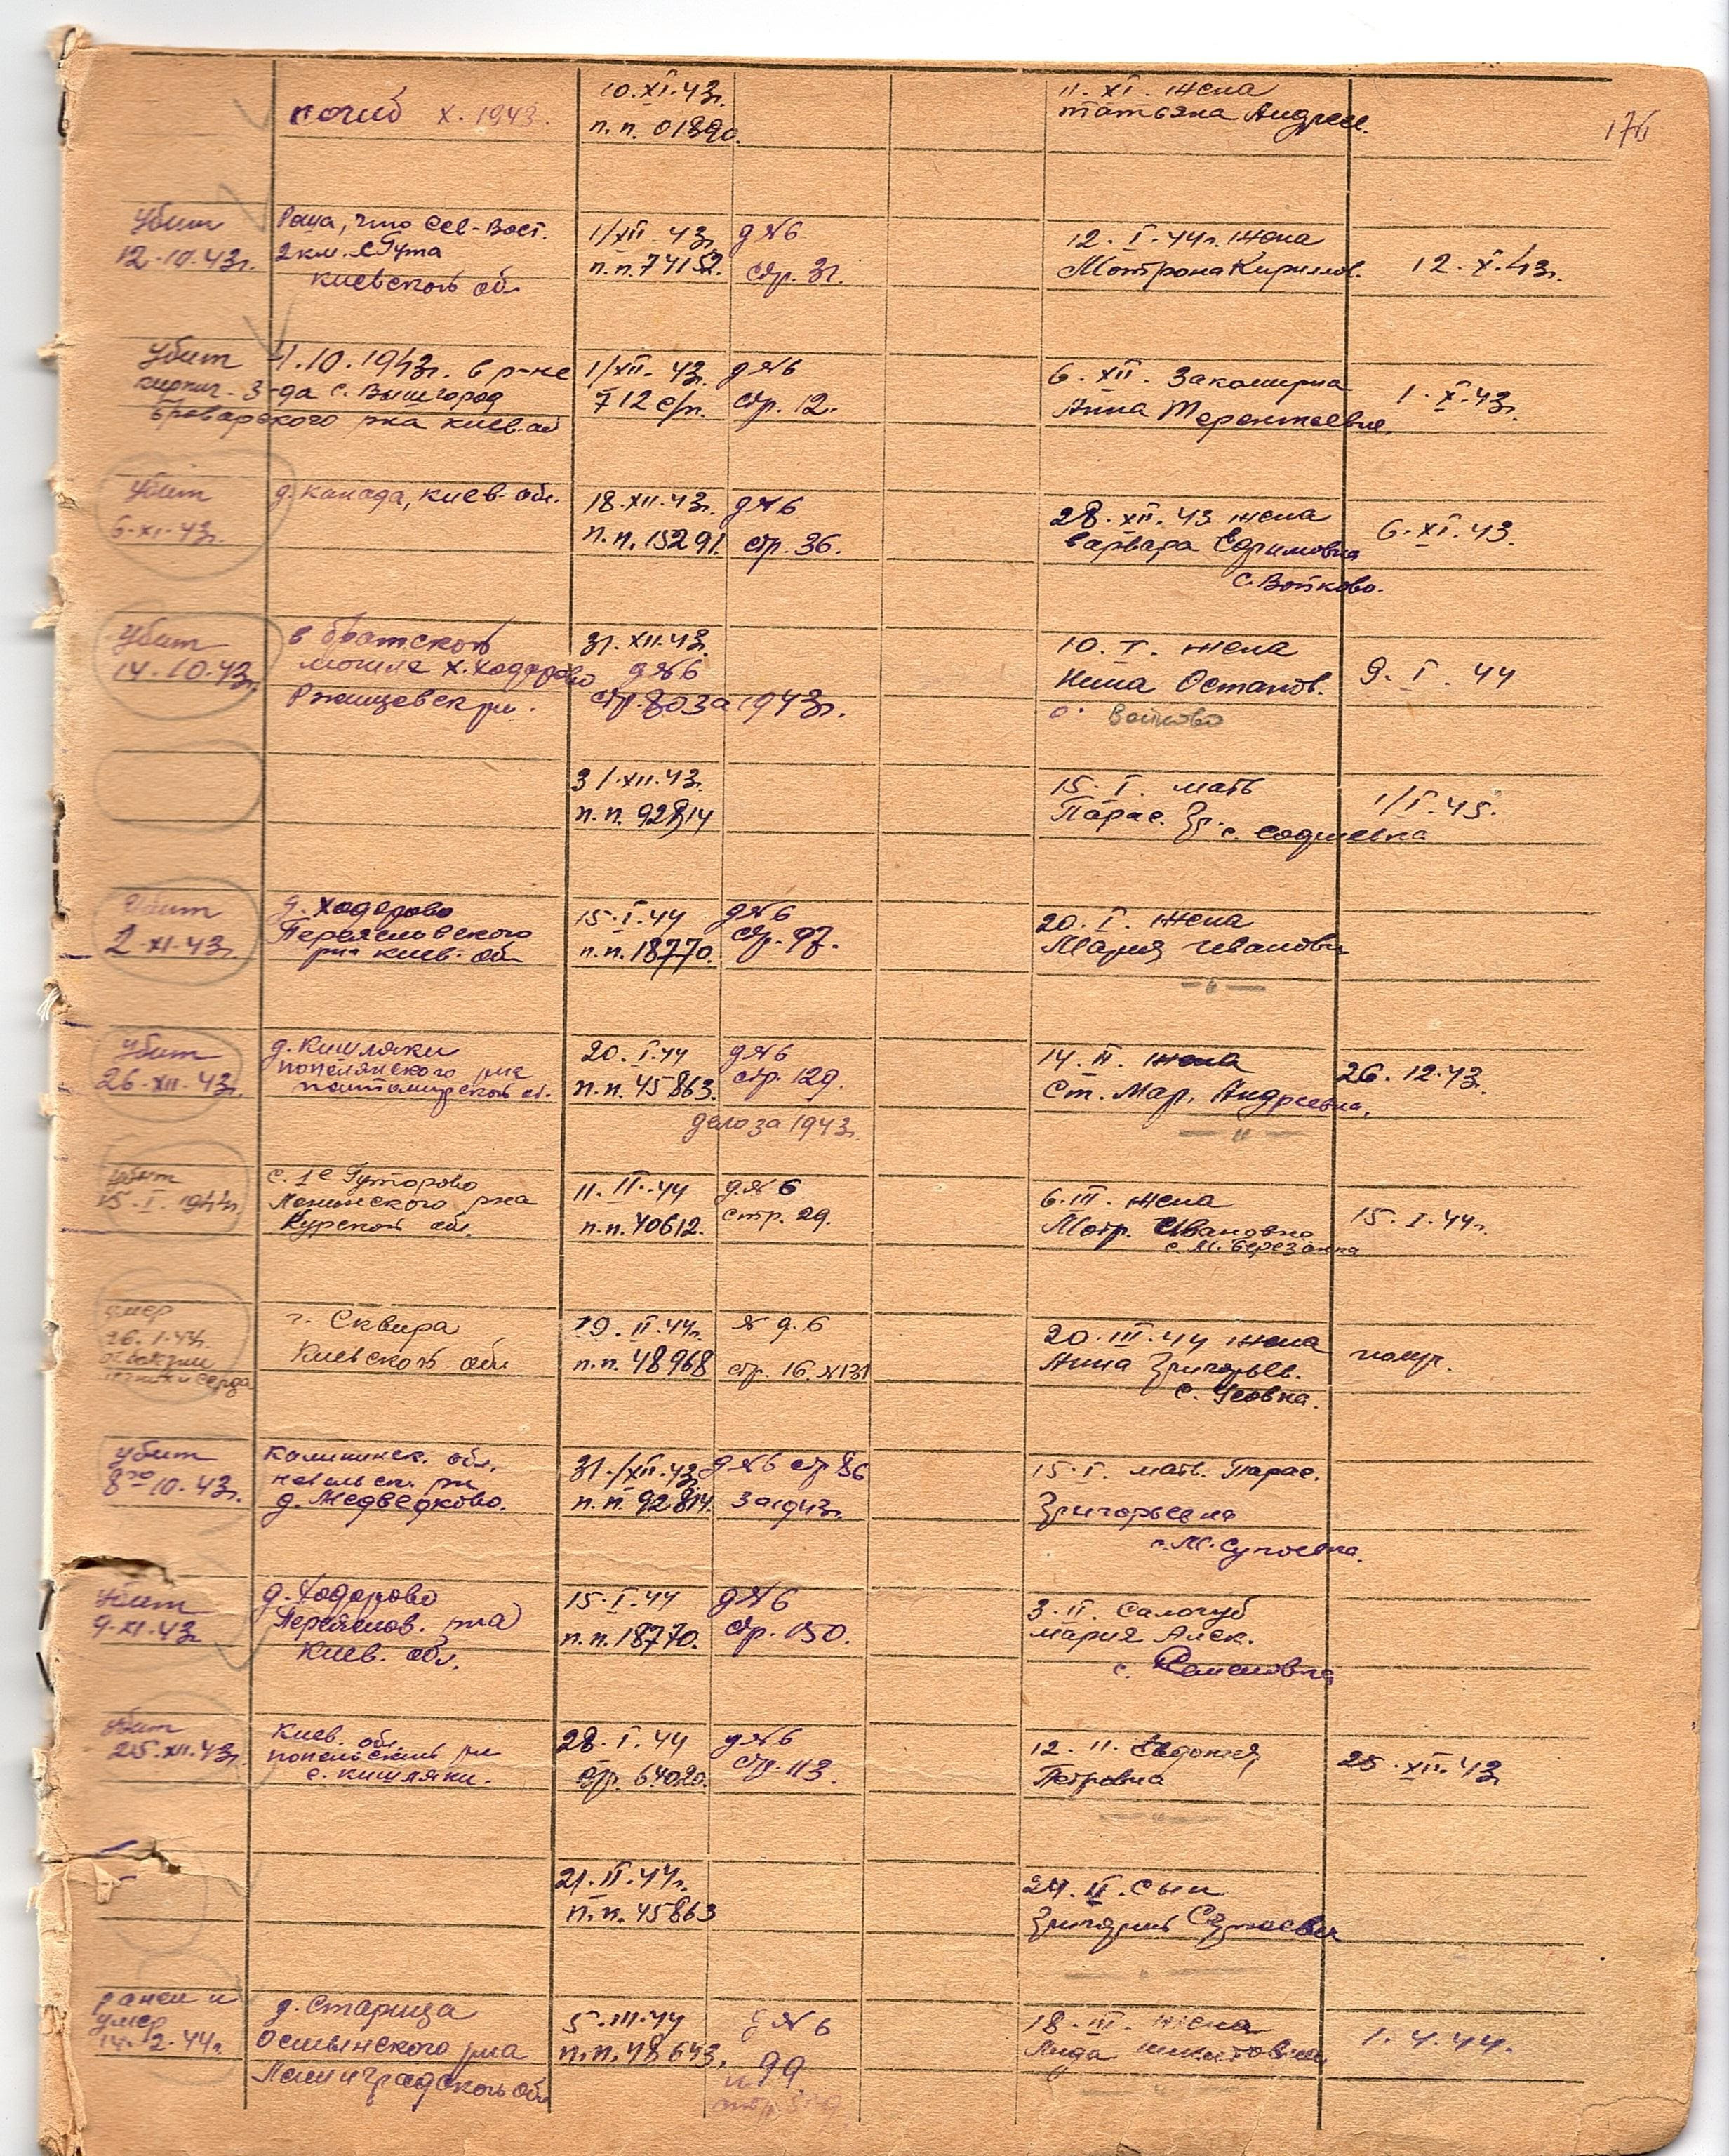 176
погиб X. 1943.
10.XI.43г.
п.п. 01890.
11.XI. жена
татьяна Андреев.
Убит
12.10.43г.
Роща, что Сев-Вост.
2 км. с Гута
киевской обл.
1/XII. 43г.
п.п. 74152.
д №6
стр. 31.
12. I. 44г. жена
Мотрона Кириллов.
12. X. 43г.
Убит 4.10.1943г. в р-не
кирпич. з-да с. Вышгород
Броварского р-на киев. об
1/XII. 43г.
712 с/п.
д №6
стр. 12.
6. XII. Закоширна
Анна Терентьевна.
1. X. 43г.
Убит
6-XI-43г.
д. канада, киев. обл.
18.XII.43г.
п.п. 15291.
д №6
стр. 36.
28.XII.43 жена
варвара Ефимовна
с. Войково.
6.XI.43.
Убит
14.10.43г.
в братской
могиле х. ходорово
Ржищевск р-н.
31.XII.43г.
д №6
стр. 80 за 1943г.
10. I. жена
Нина Остапов.
с. Войково
9. I. 44
31.XII.43г.
п.п. 92814
15. I. мать
Парас. Гр.
с. Софиевка
1/I. 45.
Убит
2-XI-43г.
д. Ходорово
Переясловского
р-на киев. обл
15. I. 44
п.п. 18770.
д №6
стр. 97.
20. I. жена
Мария Ивановн
— " —
Убит
26-XII-43г.
д. Кишляки
попелянского р-на
житомирской об.
20. I. 44
п.п. 45863.
д №6
стр. 129.
дело за 1943г.
14. II. жена
Ст. Мар. Андреевна.
— " —
26. 12. 43.
убит
15. I. 1944г.
с. 1е Гуторово
Ленинского р-на
Курской обл.
11. II. 44
п.п. 40612.
д. № 6
стр. 29.
6. III. жена
Мотр. Ивановна
с. М. Березанка
15. I. 44г.
умер
26. I. 44г.
г. Сквира
Киевской обл
19. II. 44г.
п.п. 48968
№ д. 6
стр. 16. №131
20. III. 44 жена
Анна Григорьев.
с. Усовка.
получ.
убит
8го 10. 43г.
калининск. обл.
невельск. р-н
д. Медведково.
31/XII. 43г.
п.п. 92814.
д №6 стр 86
за 1943г.
15. I. мать. Парас.
Григорьевна
с. М. Супоевка.
Убит
9-XI-43г
д. Ходорово
Переяслов. р-на
Киев. обл.
15. I. 44
п.п. 18770.
д №6
стр. 150.
3. II. Салогуб
мария Алек.
убит
25.XII.43г.
Киев. обл.
с. кишляки.
28. I. 44
64020.
д №6
стр. 113.
12. II. Евдокия
Петровна
25. XII. 43г
21. II. 44г.
п.п. 45863
24. II. сын
Григорий Сергеевич
ранен и
умер
14. 2. 44г.
д. Старица
Осьминского р-на
Ленинградской обл
5. III. 44
п.п. 48643.
д № 6
99
18. III. жена
Лида
1. 4. 44.